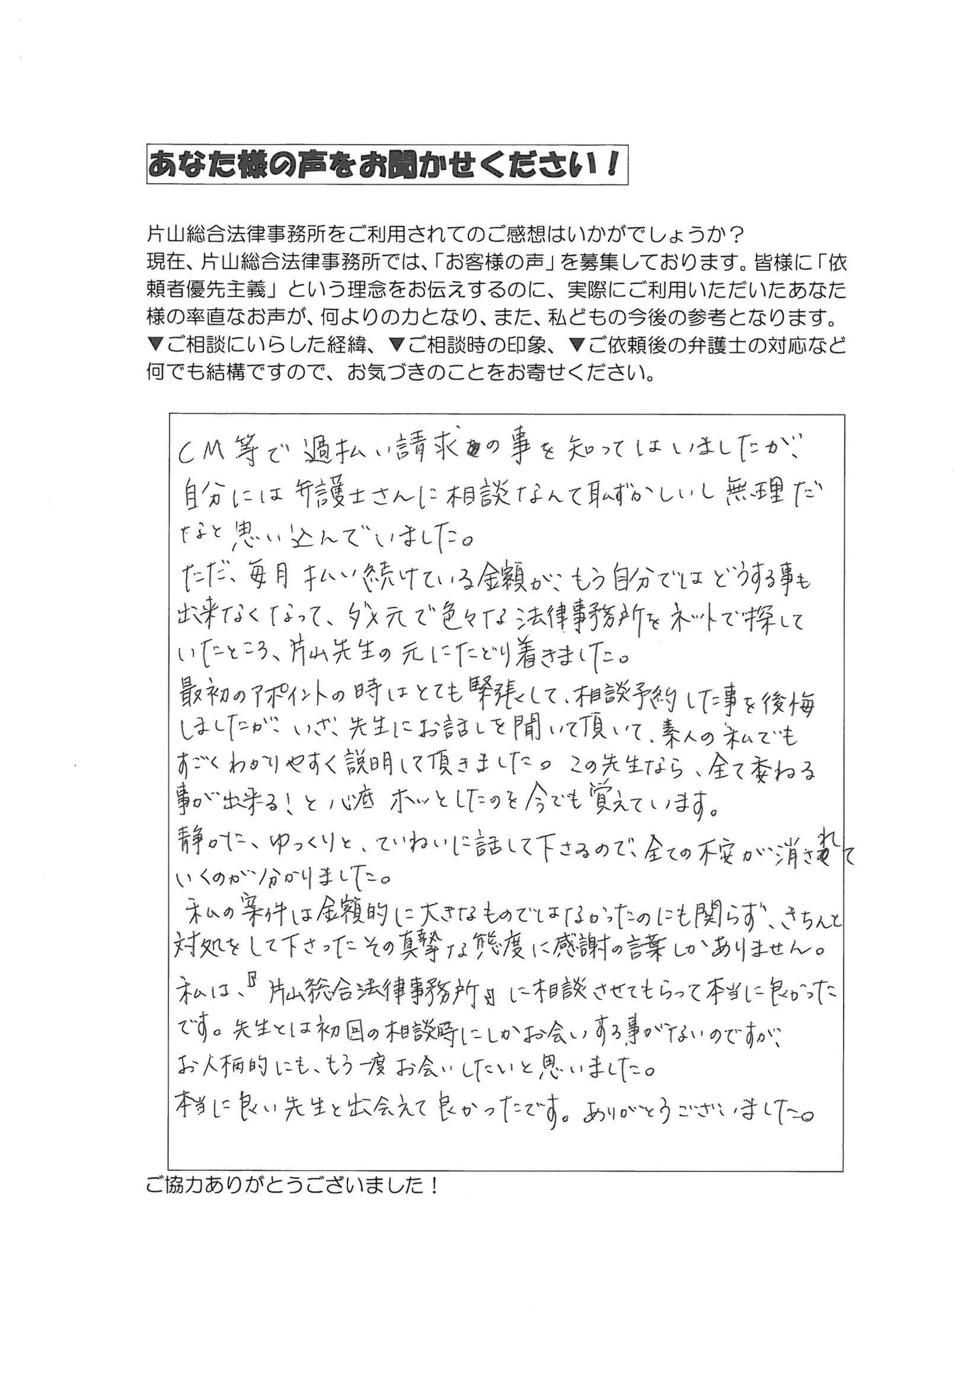 あなた様の声をお聞かせください！
片山総合法律事務所をご利用されてのご感想はいかがでしょうか？
現在、片山総合法律事務所では、「お客様の声」を募集しております。皆様に「依
頼者優先主義」という理念をお伝えするのに、実際にご利用いただいたあなた
様の率直なお声が、何よりの力となり、また、私どもの今後の参考となります。
▼ご相談にいらした経緯、▼ご相談時の印象、▼ご依頼後の弁護士の対応など
何でも結構ですので、お気づきのことをお寄せください。
CM等で過払い請求の事を知ってはいましたが、
自分には弁護士さんに相談なんて恥ずかしいし無理だ
なと思い込んでいました。
ただ、毎月払い続けている金額が、もう自分ではどうする事も
出来なくなって、ダメ元で色々な法律事務所をネットで探して
いたところ、片山先生の元にたどり着きました。
最初のアポイントの時はとても緊張して、相談予約した事を後悔
しましたが、いざ、先生にお話しを聞いて頂いて、素人の私でも
すごくわかりやすく説明して頂きました。この先生なら、全て委ねる
事が出来る！と心底ホッとしたのを今でも覚えています。
静かに、ゆっくりと、ていねいに話して下さるので、全ての不安が消されて
いくのが分かりました。
私の案件は金額的に大きなものではなかったのにも関らず、きちんと
対処をして下さったその真摯な態度に感謝の言葉しかありません。
私は、『片山総合法律事務所』に相談させてもらって本当に良かった
です。先生とは初回の相談時にしかお会いする事がないのですが、
お人柄的にも、もう一度お会いしたいと思いました。
本当に良い先生と出会えて良かったです。ありがとうございました。
ご協力ありがとうございました！